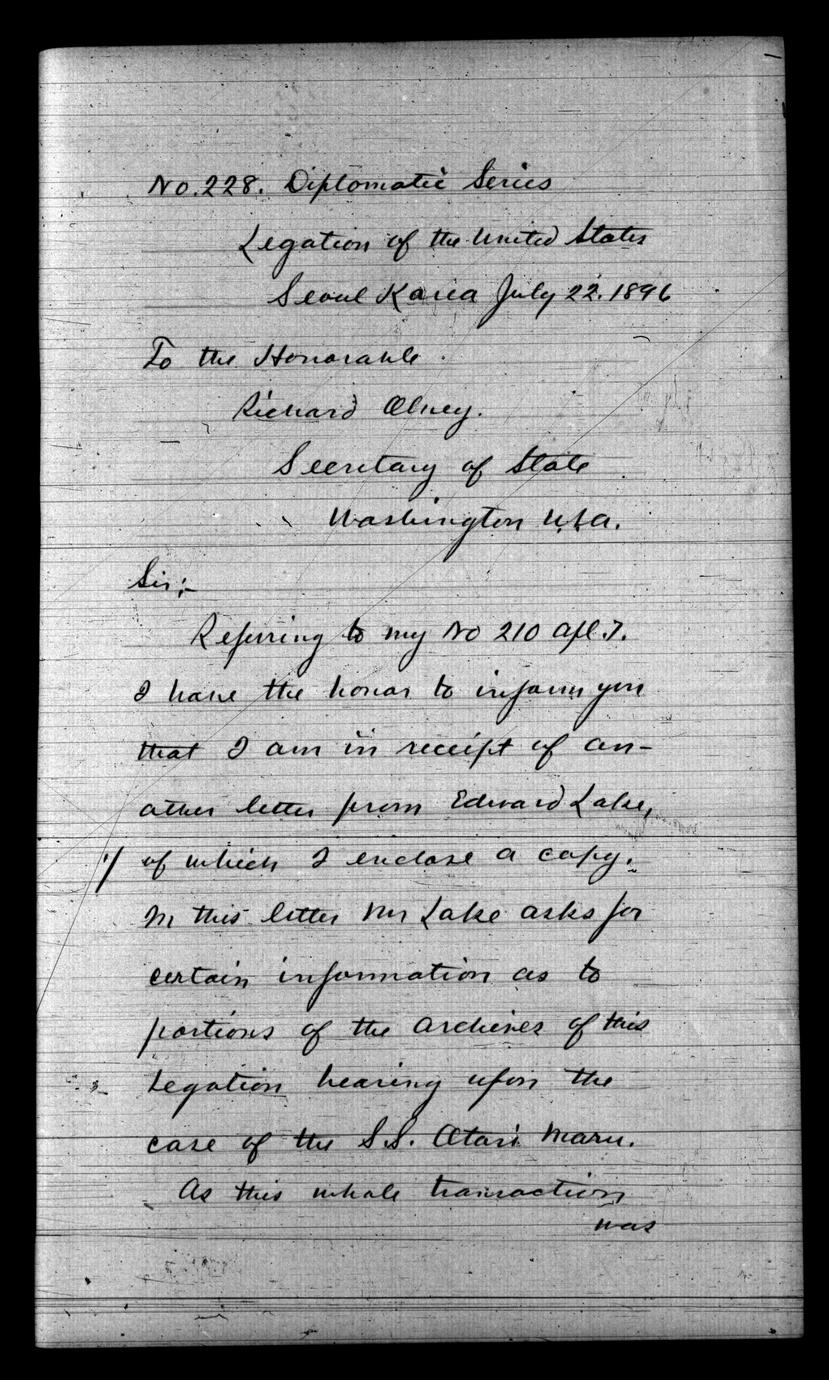 No. 228. Diplomatic Series
Legation of the United States
Seoul Korea July 22. 1896
To the Honorable
Richard Olney.
Secretary of State
Washington U.S.A.
Sir;-
Referring to my No 210 Apl. 7.
I have the honor to inform you
that I am in receipt of an-
other letter from Edward Lake,
1/ of which I enclose a copy.
In this letter Mr Lake asks for
certain information as to
portions of the archives of this
Legation bearing upon the
case of the S.S. Otari Maru.
As this whole transaction
was